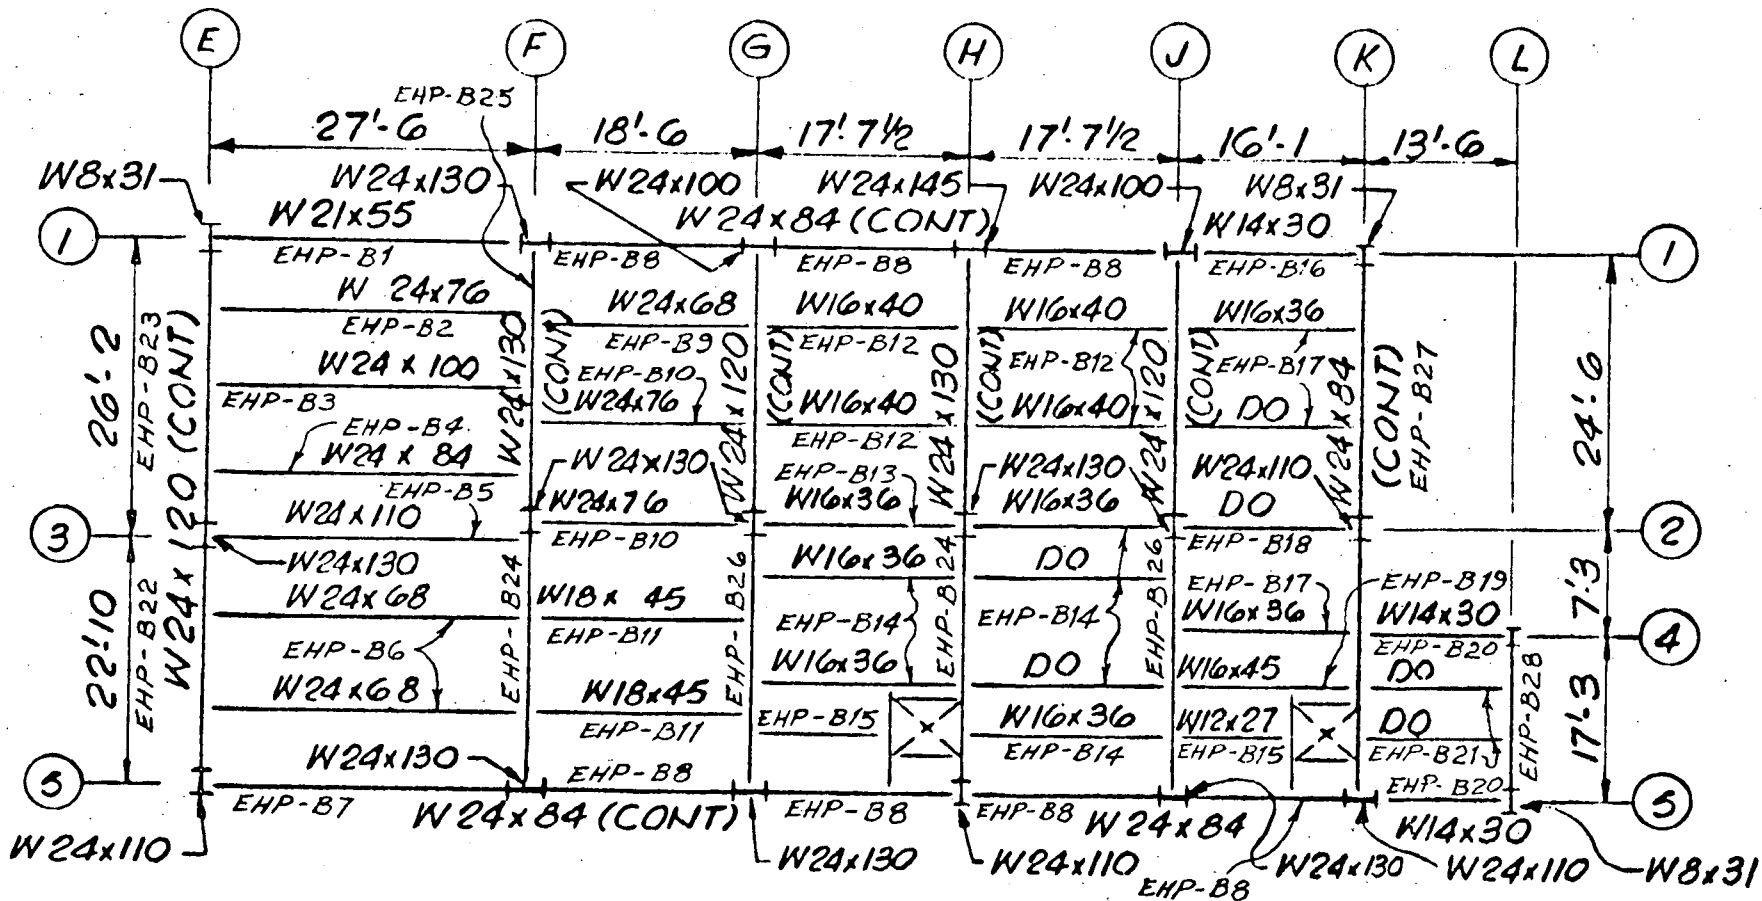 E
F
G
H
J
K
L
EHP-B25
27'-6
18'-6
17'-7½
17'-7½
16'-1
13'-6
W8x31
W24x130
W24x100
W24x145
W24x100
W8x31
W21x55
W24x84 (CONT)
W14x30
1
1
EHP-B1
EHP-B8
EHP-B8
EHP-B8
EHP-B16
W 24x76
W24x68
W16x40
W16x40
W16x36
EHP-B2
EHP-B9
EHP-B12
EHP-B12
EHP-B17
W24 x 100
EHP-B10
EHP-B3
W24x76
W16x40
W16x40
DO
EHP-B4
EHP-B12
W24 x 84
W24x130
EHP-B13
W24x130
W24x110
EHP-B5
W24x110
W24x76
W16x36
W16x36
DO
3
2
EHP-B10
EHP-B18
W24x130
W16x36
DO
W24x68
W18x 45
EHP-B17
EHP-B19
W16x36
W14x30
EHP-B11
EHP-B14
EHP-B14
4
EHP-B6
W16x36
DO
W16x45
EHP-B20
DO
W24x68
W18x45
EHP-B15
W16x36
W12x27
DO
EHP-B11
EHP-B14
EHP-B15
EHP-B21
W24x130
EHP-B8
EHP-B20
5
5
EHP-B7
W24x84 (CONT)
EHP-B8
EHP-B8
W24x84
W14x30
W24x110
W24x130
W24x110
EHP-B8
W24x130
W24x110
W8x31
26'-2
22'-10
EHP-B23
EHP-B22
W24x 120 (CONT)
W24x130
(CONT)
EHP-B24
W24x120
(CONT)
EHP-B26
W24x130
(CONT)
EHP-B24
W24x120
(CONT)
EHP-B26
W24x84
(CONT)
EHP-B27
EHP-B28
24'-6
7'-3
17'-3